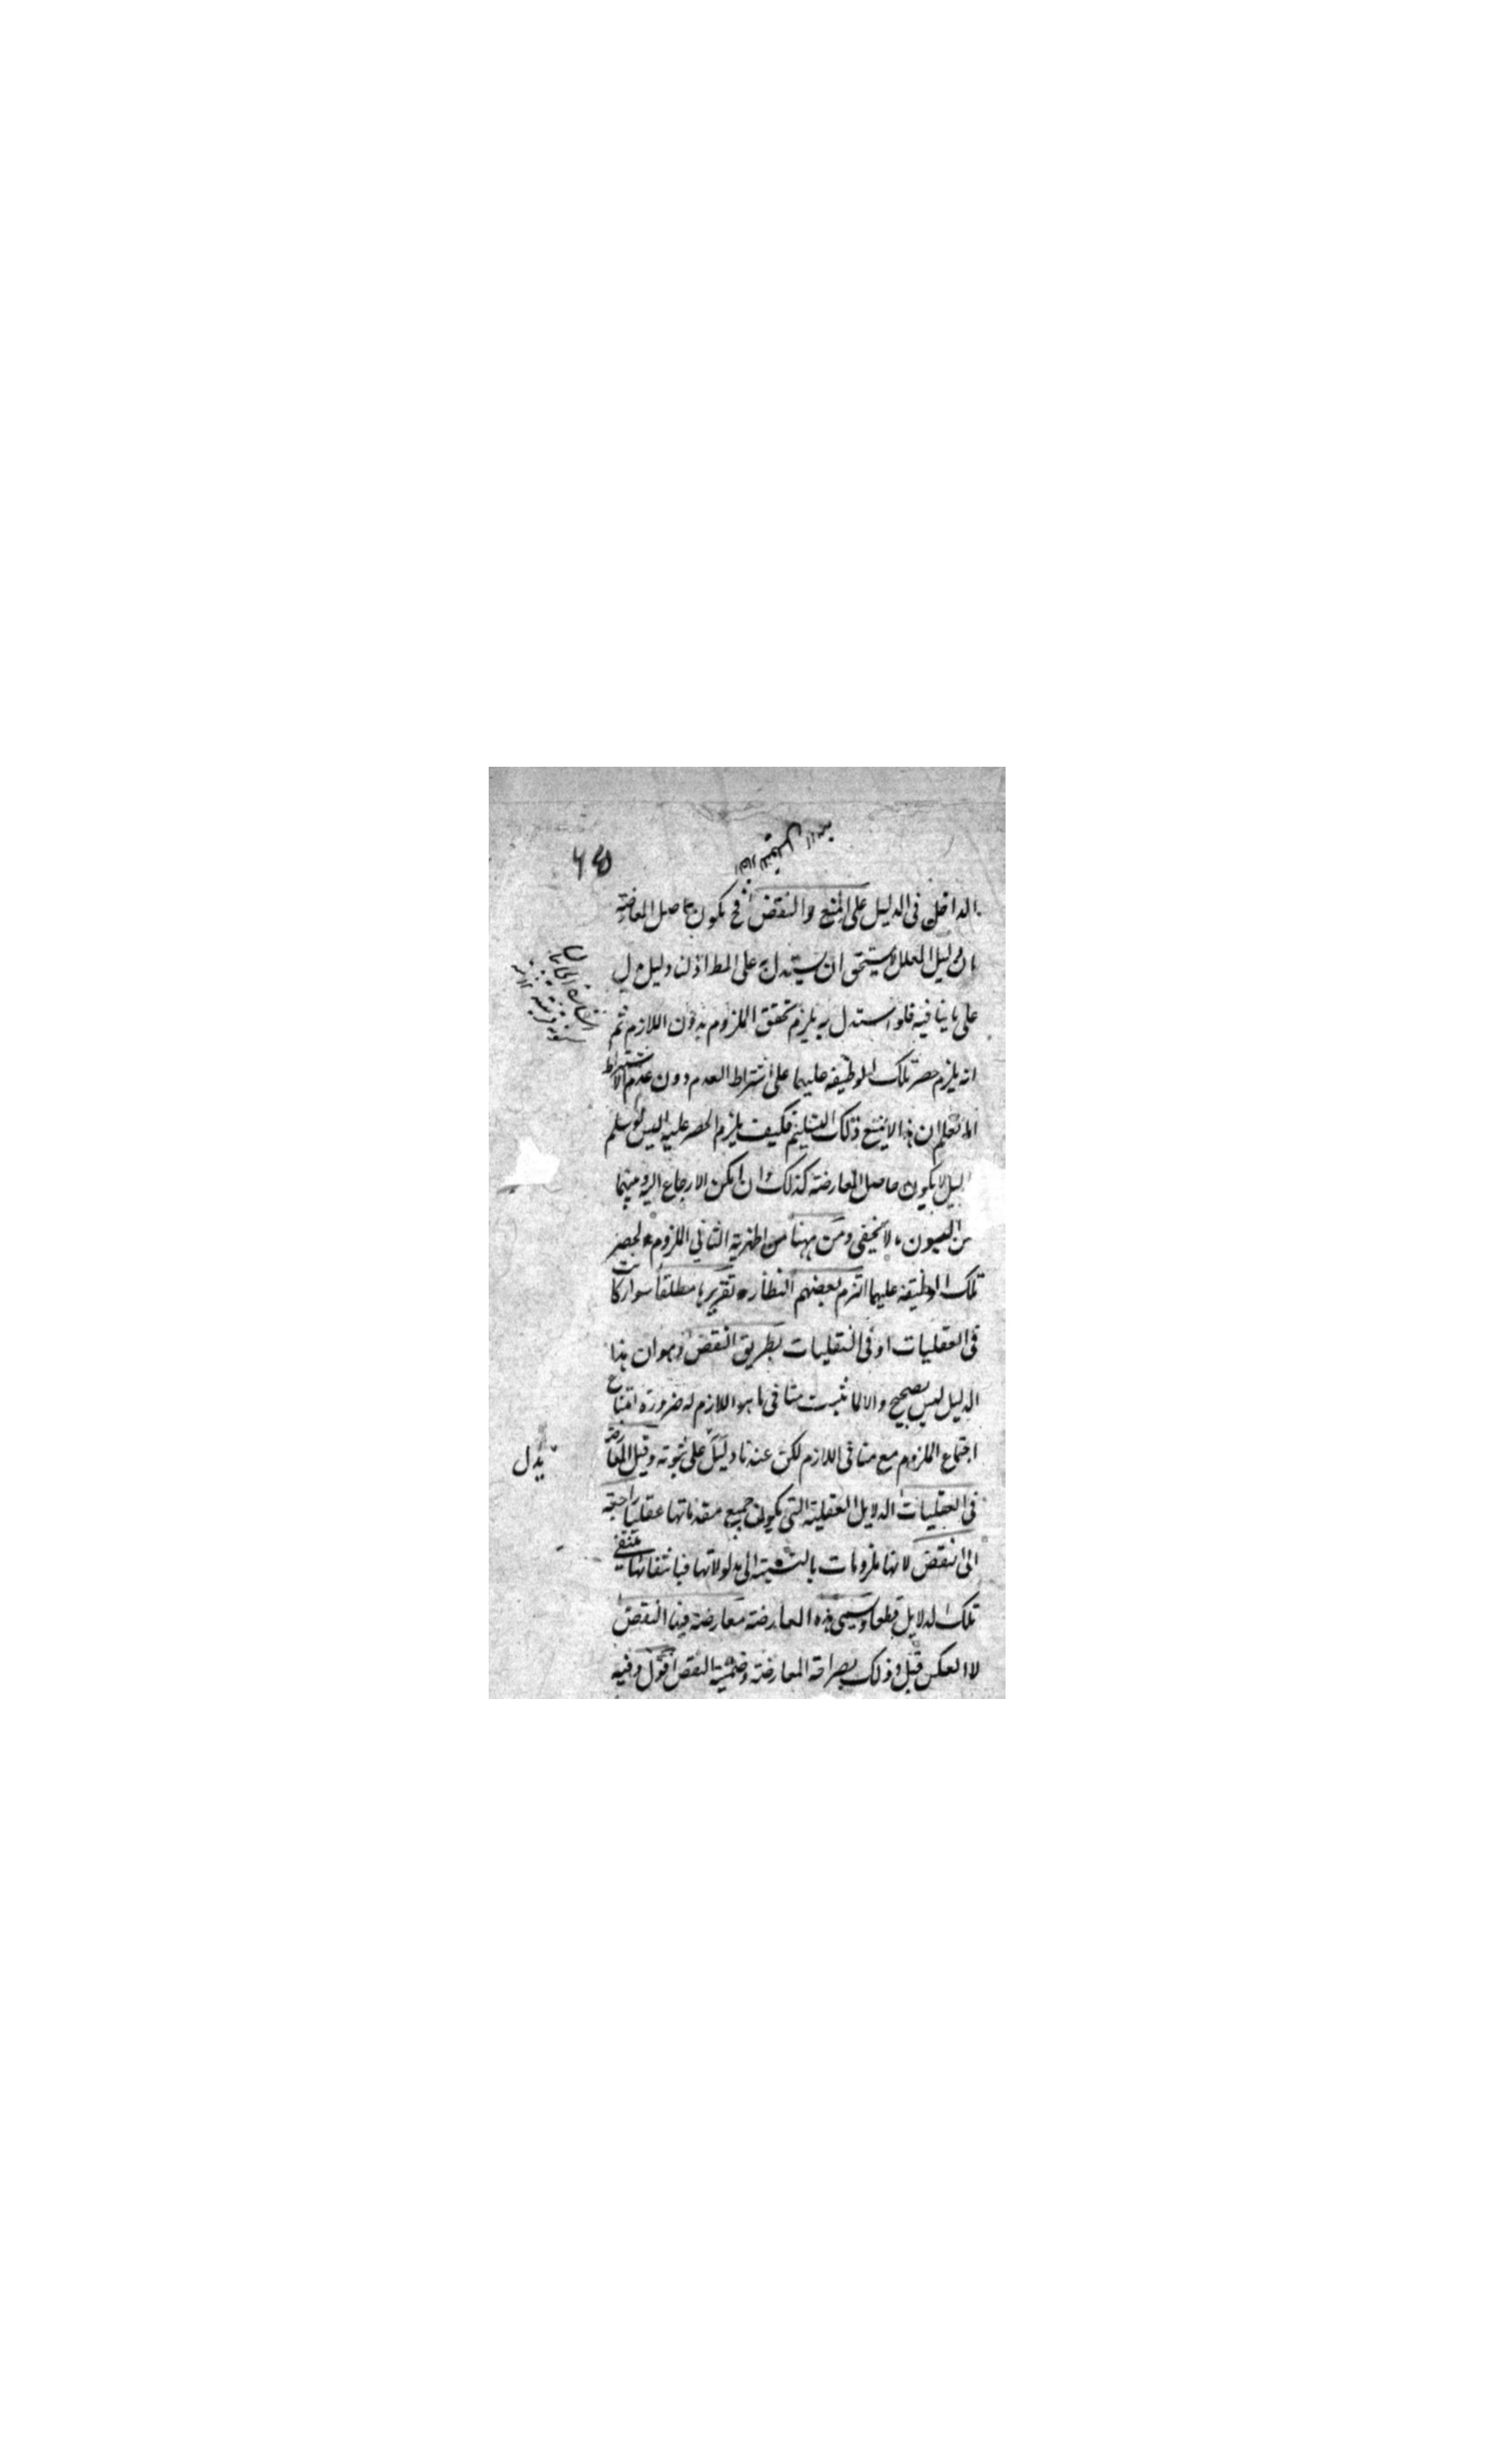 الداخل فى الدليل على المنع والنقض فح يكون حاصل المعارضة
ان دليل المعلل لا يستحق ان يستدل به على المط اذ لنا دليل دل
على ما ينافيه فلو استدل به يلزم تحقق الملزوم بدون اللازم ثم
انه يلزم حصر تلك الوظيفة عليهما على اشتراط العدم دون عدم الاشتراط
تعلم ان هذا لا يمنع ذلك التسليم فكيف يلزم الحصر عليه اليس لو سلم
الدليل لا يكون حاصل المعارضة كذلك وان امكن الارجاع اليه
من العيون لا يخفى ومن ههنا من اظهرية الثانى اللزوم لحصر
تلك الوظيفة عليهما التزم بعضهم النظار تقريرها مطلقا سواء كانت
فى العقليات او فى النقليات بطريق النقض وهو ان هذا
الدليل ليس بصحيح والا لما ثبت منافى ما هو اللازم له ضرورة امتناع
اجتماع الملزوم مع منافى اللازم لكن عندنا دليل على ثبوته وقيل المعارضة
يدل
فى العقليات الدلايل العقلية التى يكون جميع مقدماتها عقليا راجعة
الى النقض لانها ملزومات بالنسبة الى مدلولاتها فبانتفائها تنتفى
تلك الدلايل قطعا ويسمى هذه المعارضة معارضة فيها النقض
لا العكس قيل وذلك بصراحة المعارضة وضمنية النقض اقول وفيه